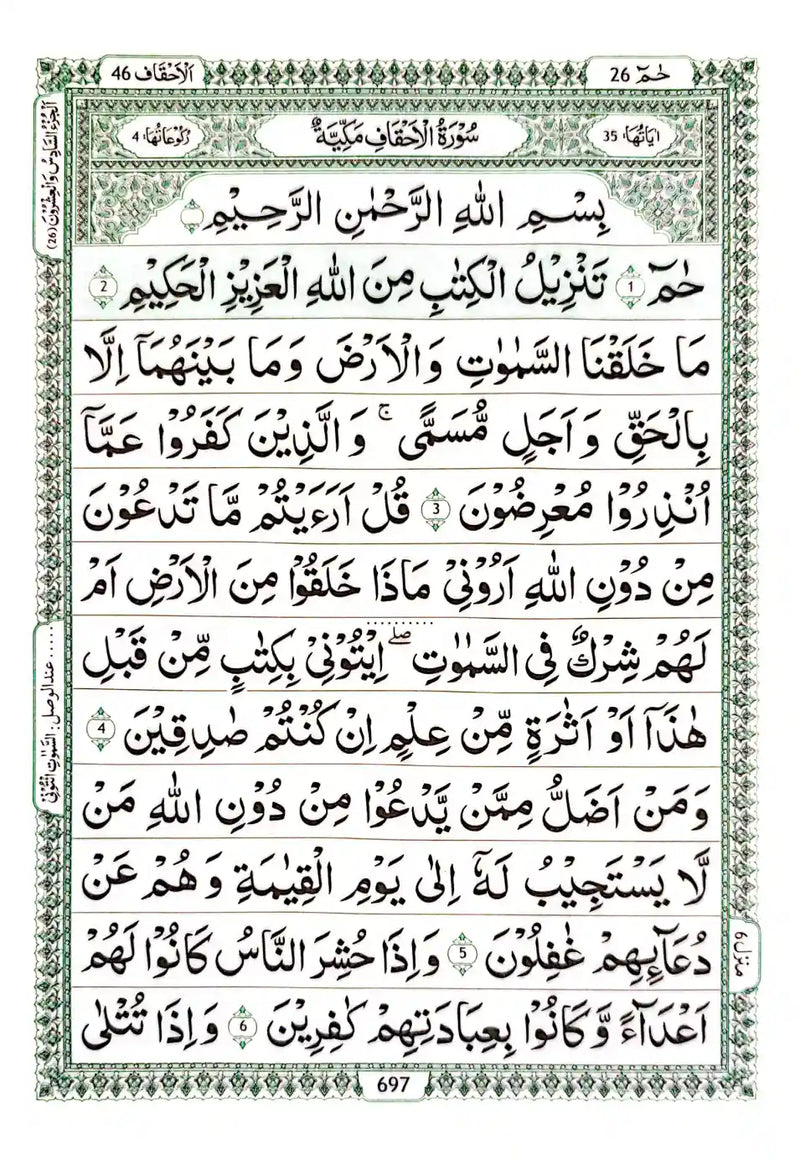 حٰمٓ 26
اَلْاَحْقَاف 46
اٰیَاتُهَا، 35
سُوْرَةُ الْاَحْقَافِ مَكِّیَّةٌ
رُكُوْعَاتُهَا، 4
بِسْمِ اللهِ الرَّحْمٰنِ الرَّحِیْمِ
حٰمٓ 1 تَنْزِیْلُ الْكِتٰبِ مِنَ اللهِ الْعَزِیْزِ الْحَكِیْمِ 2
مَا خَلَقْنَا السَّمٰوٰتِ وَالْاَرْضَ وَمَا بَیْنَهُمَاۤ اِلَّا
بِالْحَقِّ وَاَجَلٍ مُّسَمًّی ۚ وَالَّذِیْنَ كَفَرُوْا عَمَّاۤ
اُنْذِرُوْا مُعْرِضُوْنَ 3 قُلْ اَرَءَیْتُمْ مَّا تَدْعُوْنَ
مِنْ دُوْنِ اللهِ اَرُوْنِیْ مَاذَا خَلَقُوْا مِنَ الْاَرْضِ اَمْ
لَهُمْ شِرْكٌ فِی السَّمٰوٰتِ ۖ اِیْتُوْنِیْ بِكِتٰبٍ مِّنْ قَبْلِ
هٰذَاۤ اَوْ اَثٰرَةٍ مِّنْ عِلْمٍ اِنْ كُنْتُمْ صٰدِقِیْنَ 4
وَمَنْ اَضَلُّ مِمَّنْ یَّدْعُوْا مِنْ دُوْنِ اللهِ مَنْ
لَّا یَسْتَجِیْبُ لَهٗۤ اِلٰی یَوْمِ الْقِیٰمَةِ وَهُمْ عَنْ
دُعَآىِٕهِمْ غٰفِلُوْنَ 5 وَاِذَا حُشِرَ النَّاسُ كَانُوْا لَهُمْ
اَعْدَآءً وَّكَانُوْا بِعِبَادَتِهِمْ كٰفِرِیْنَ 6 وَاِذَا تُتْلٰی
اَلْجُزْءُ السَّادِسُ وَالْعِشْرُوْنَ (26)
..... عندالوصل: السَّمٰوٰتِ ائْتُوْنِیْ
منزل 6
697